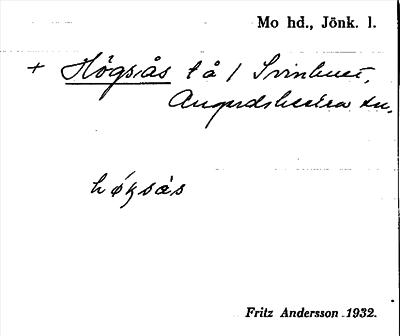 Mo hd., Jönk. l.
+ Högsås t å / Svinhuset,
Angerdshestra sn.
høgsås
Fritz Andersson 1932.